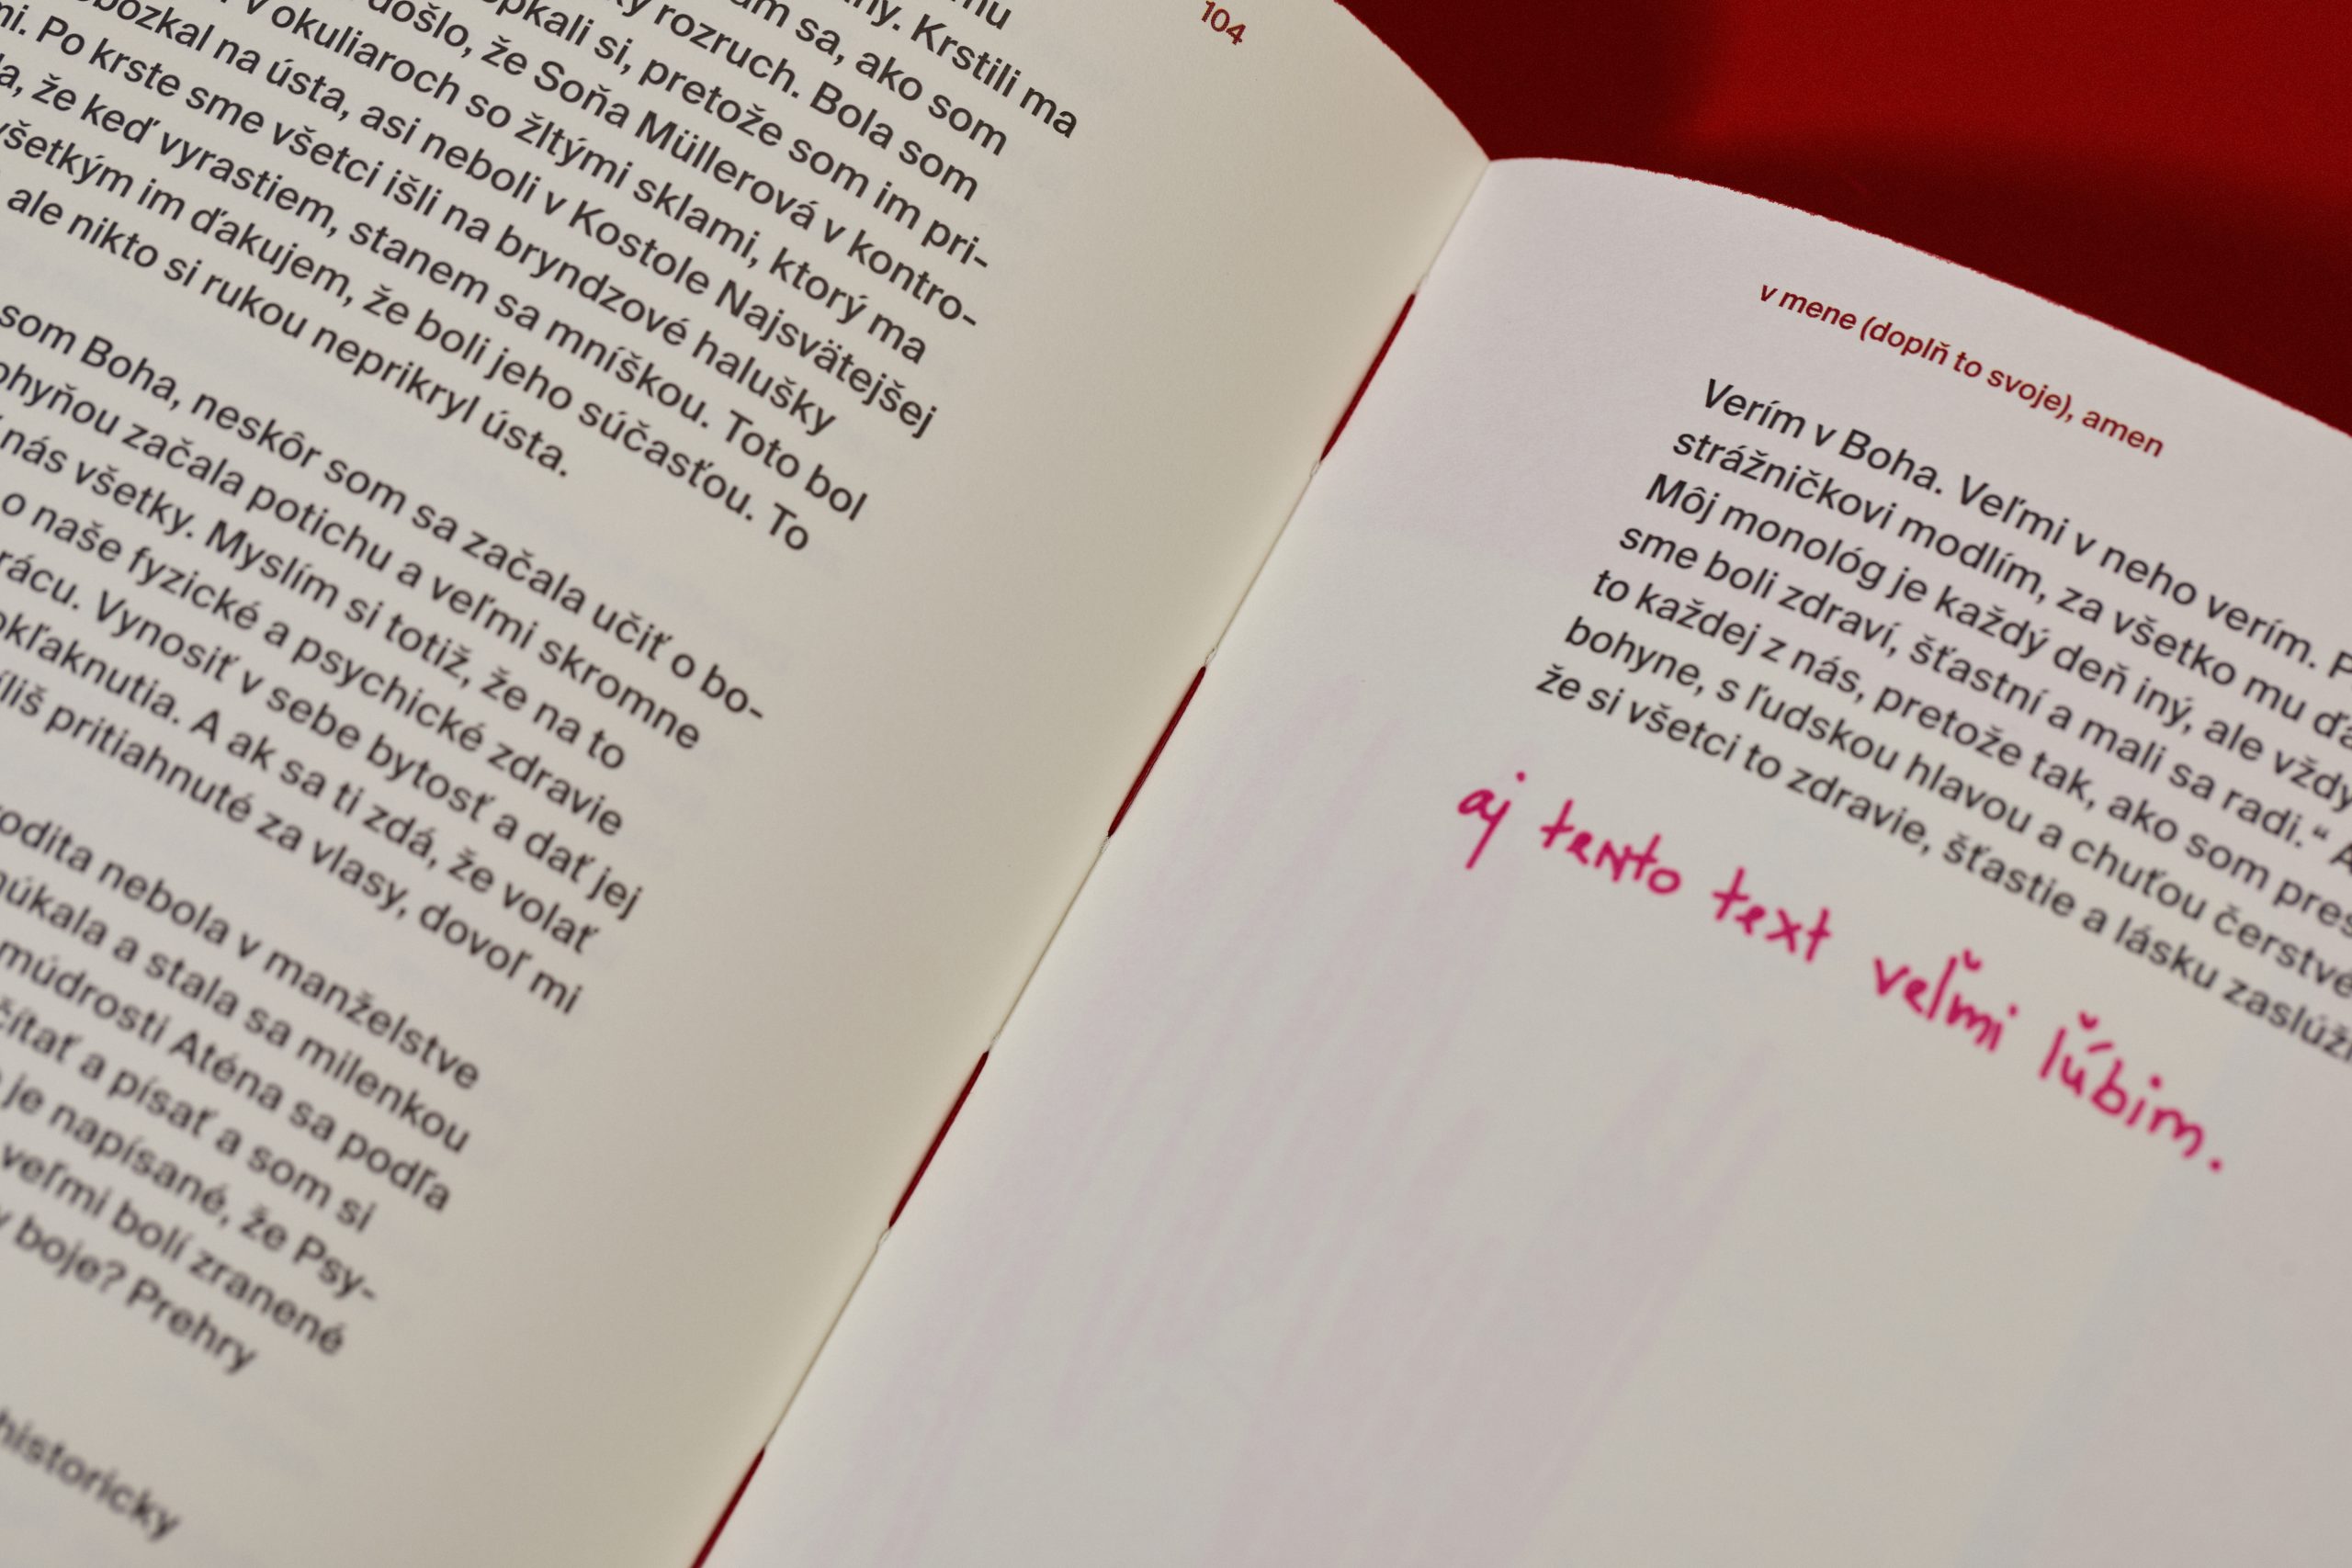 104
Krstili ma
sa, ako som
rozruch. Bola som
si, pretože som im pri-
došlo, že Soňa Müllerová v kontro-
v okuliaroch so žltými sklami, ktorý ma
na ústa, asi neboli v Kostole Najsvätejšej
Po krste sme všetci išli na bryndzové halušky
že keď vyrastiem, stanem sa mníškou. Toto bol
všetkým im ďakujem, že boli jeho súčasťou. To
ale nikto si rukou neprikryl ústa.
som Boha, neskôr som sa začala učiť o bo-
začala potichu a veľmi skromne
nás všetky. Myslím si totiž, že na to
o naše fyzické a psychické zdravie
Vynosiť v sebe bytosť a dať jej
A ak sa ti zdá, že volať
pritiahnuté za vlasy, dovoľ mi
nebola v manželstve
a stala sa milenkou
múdrosti Aténa sa podľa
čítať a písať a som si
je napísané, že Psy-
veľmi bolí zranené
boje? Prehry
historicky
v mene (doplň to svoje), amen
Verím v Boha. Veľmi v neho verím.
strážničkovi modlím, za všetko mu
Môj monológ je každý deň iný, ale vždy
sme boli zdraví, šťastní a mali sa radi.“
to každej z nás, pretože tak, ako som
bohyne, s ľudskou hlavou a chuťou
že si všetci to zdravie, šťastie a lásku
aj tento text veľmi ľúbim.